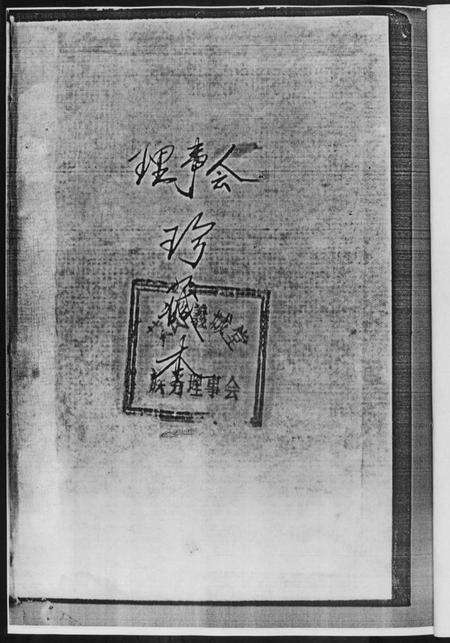 理事会
珍
藏
本
族务理事会